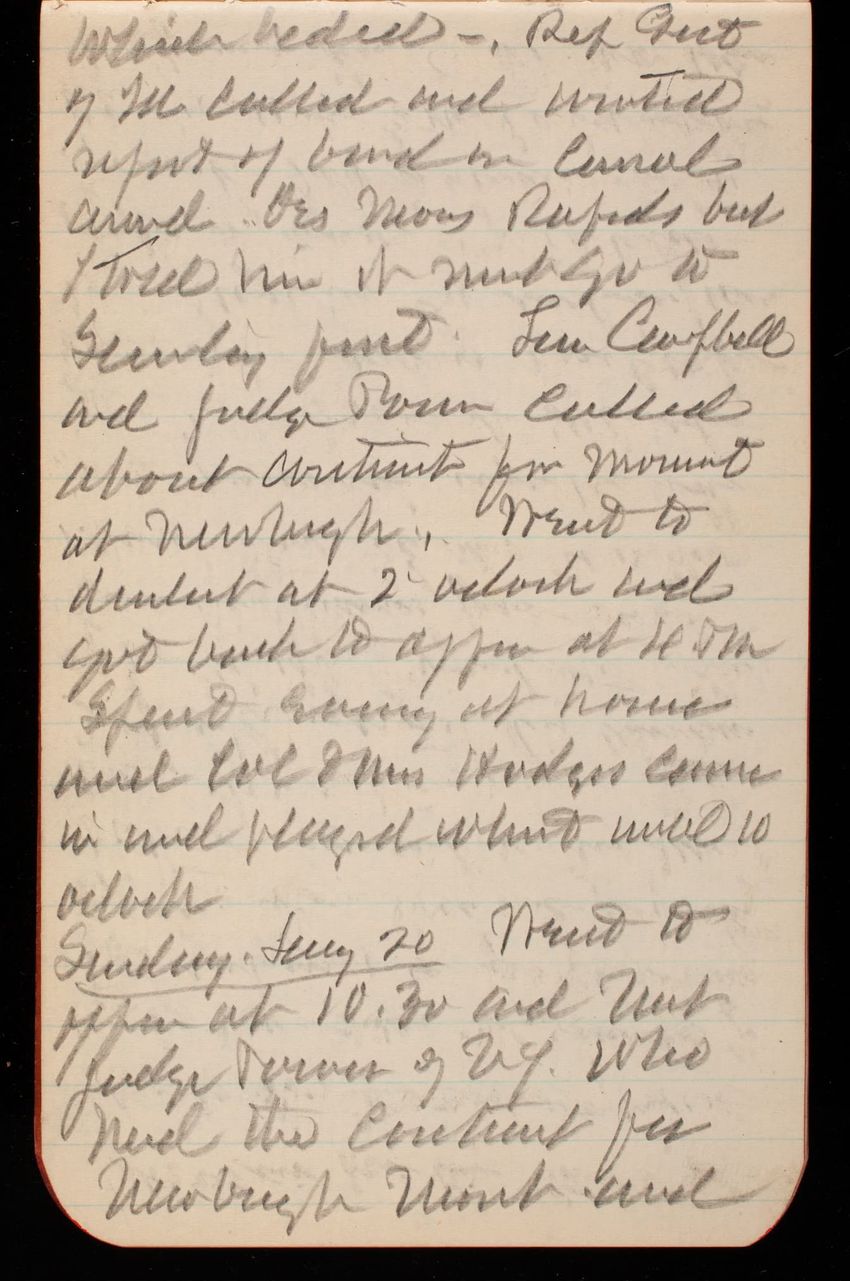 Which he did -, Rep Gest
of Ill called and wanted
report of board on Canal
around Des Moines Rapids but
I told him it must go to
Senator first. Sen Campbell
and Judge called
about contract for monument
at Newburgh., Went to
dentist at 2 oclock and
got back to office at 4 P.M.
Spent evening at home
and Col & Mrs Hodges came
in and played whist until 10
oclock
Sunday. Jany 20 Went to
office at 10.30 and met
Judge of N.Y. Who
had the contract for
Newburgh Mont and